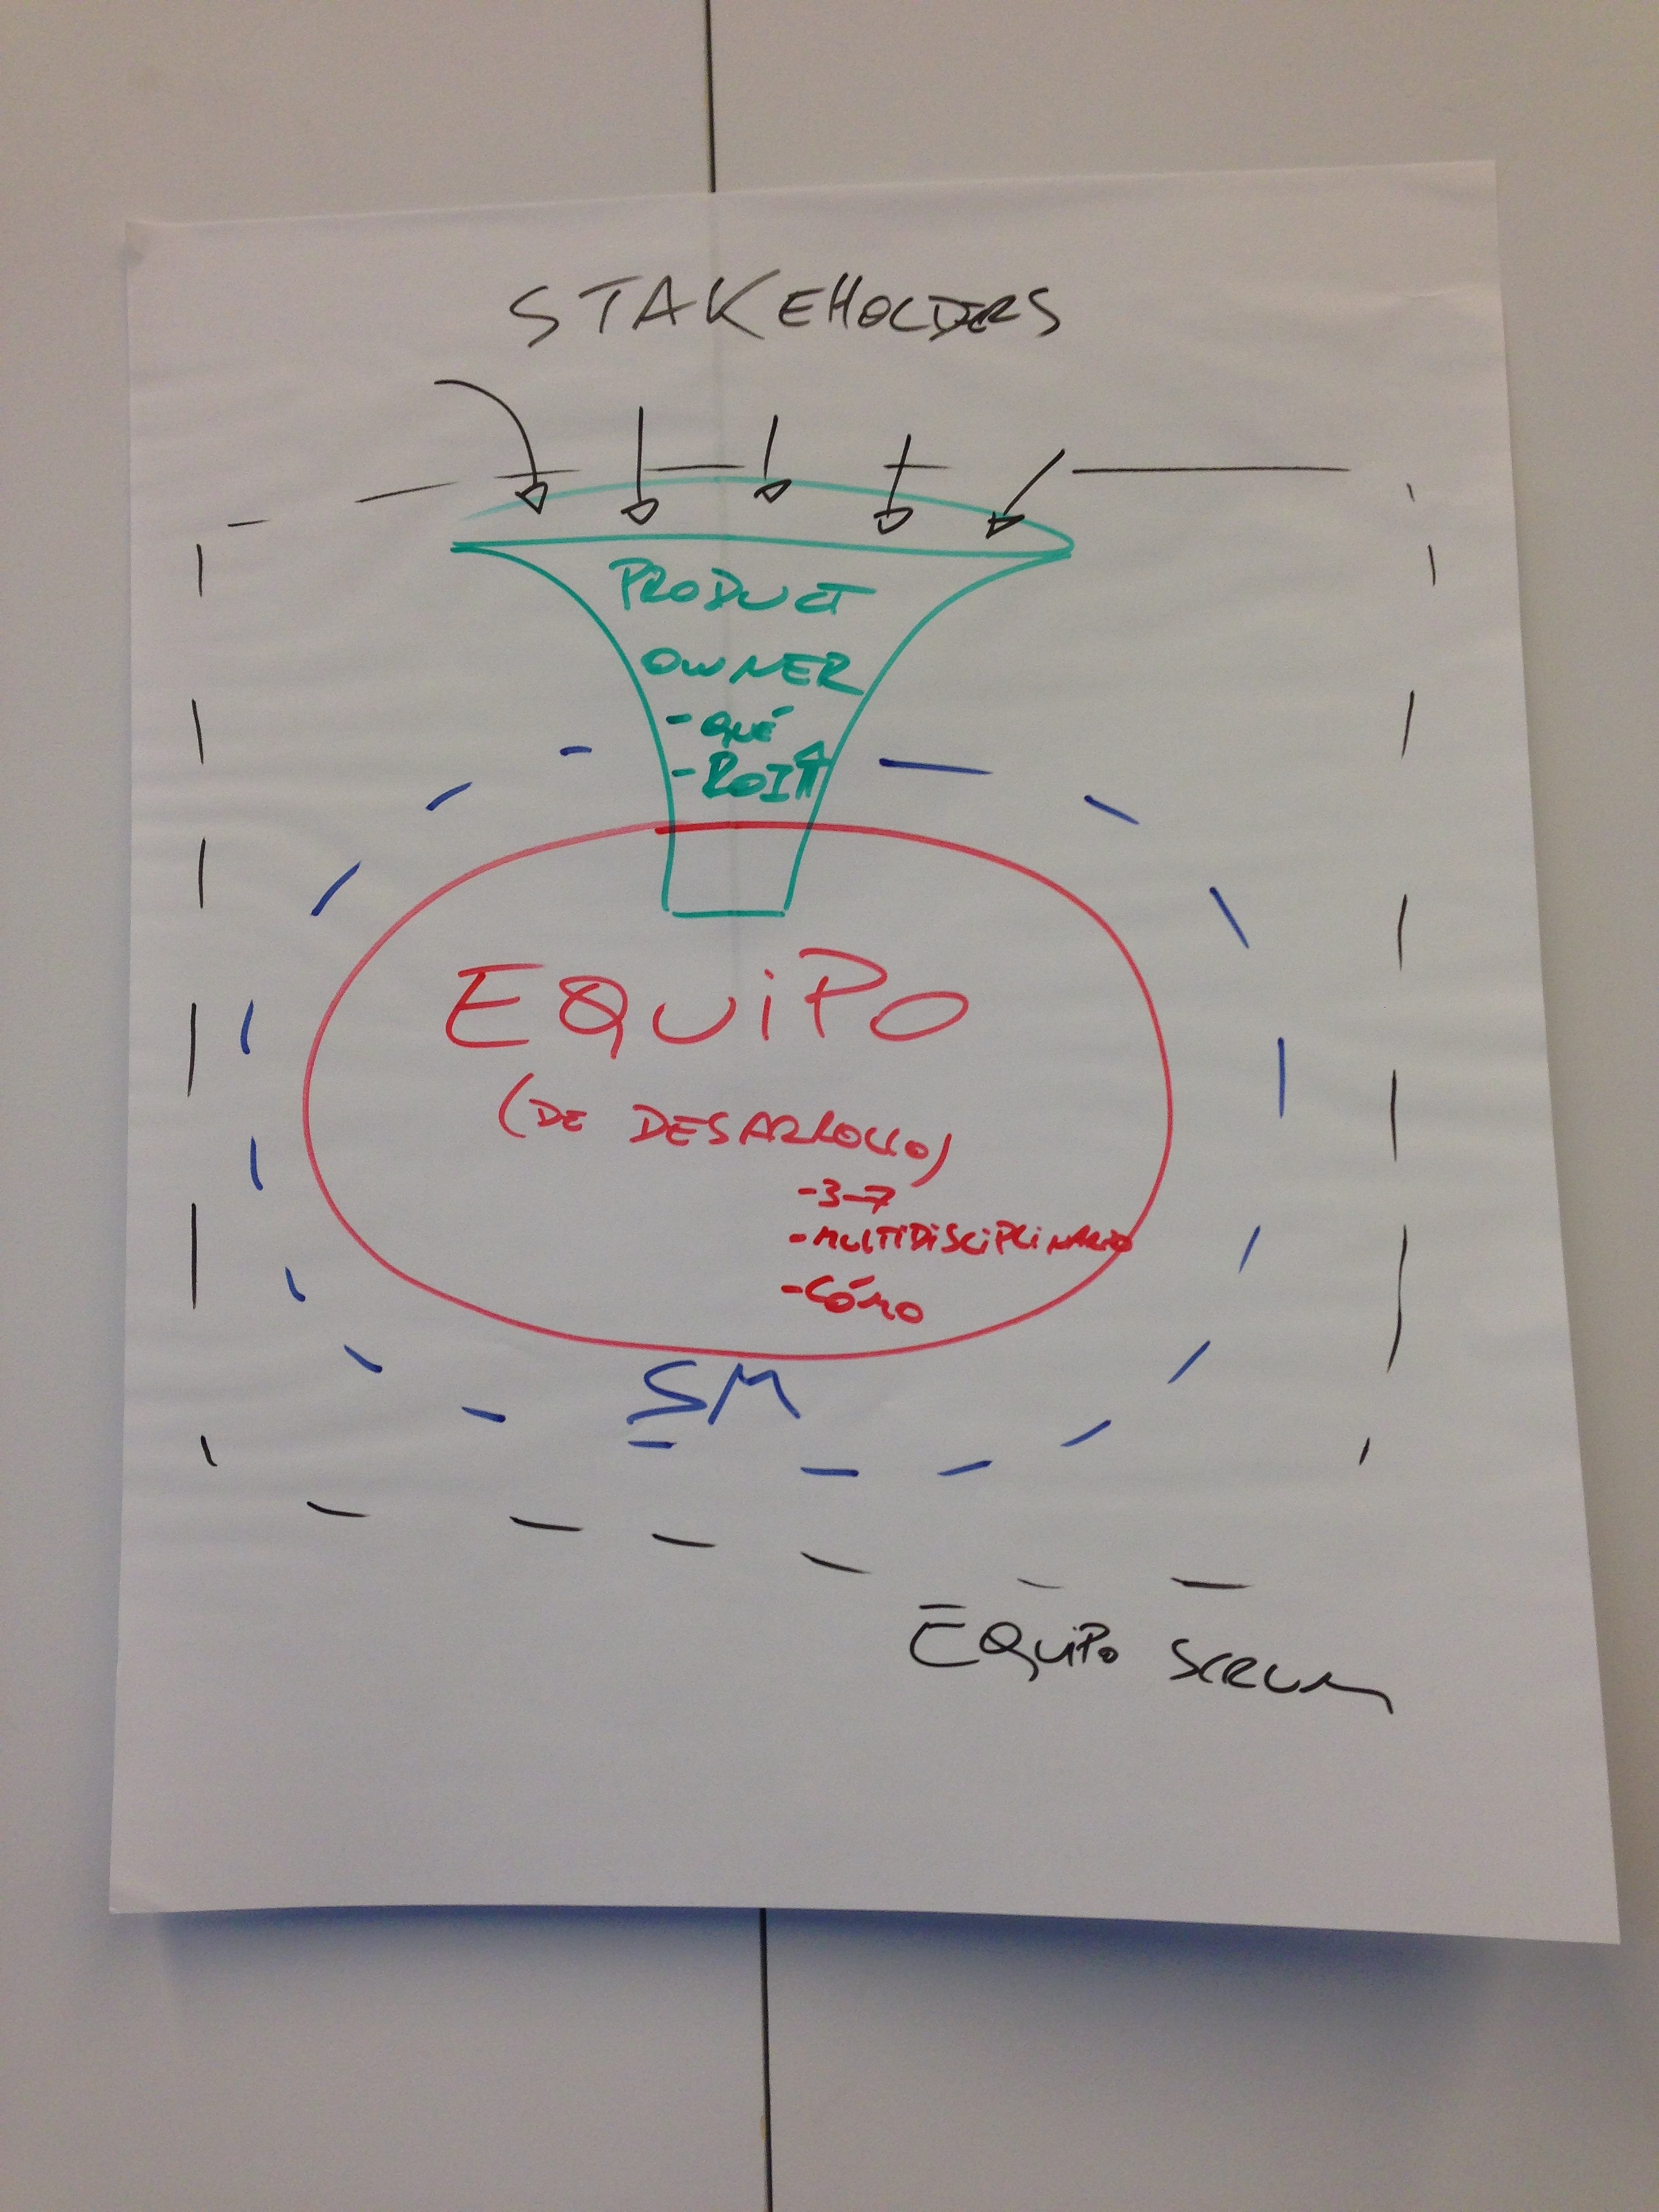 STAKEHOLDERS
PRODUCT
OWNER
- QUÉ
- ROI⇑
EQUIPO
(DE DESARROLLO)
- 3-7
- MULTIDISCIPLINARIO
- CÓMO
SM
EQUIPO SCRUM